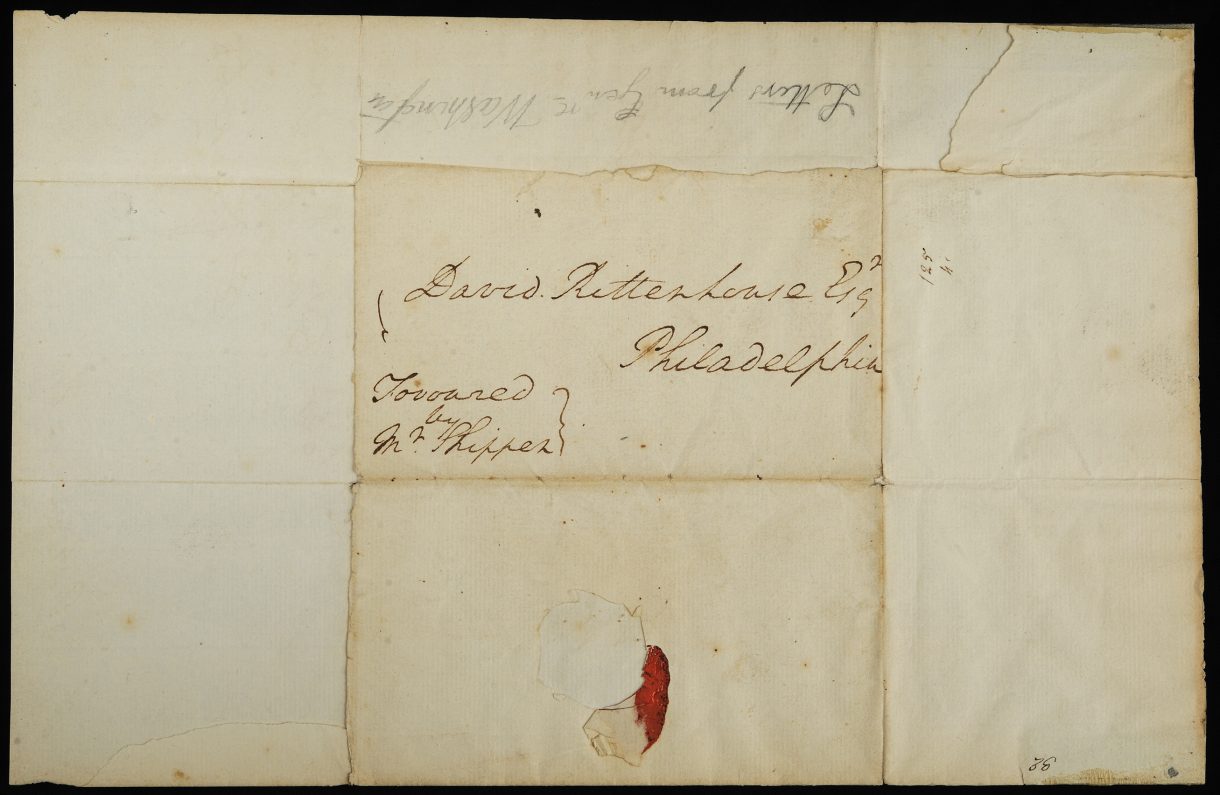 Letters from Gen.ˡ Washington
David Rittenhouse Esqr
Philadelphia
Favoured
by
Mr. Shippen
125
4